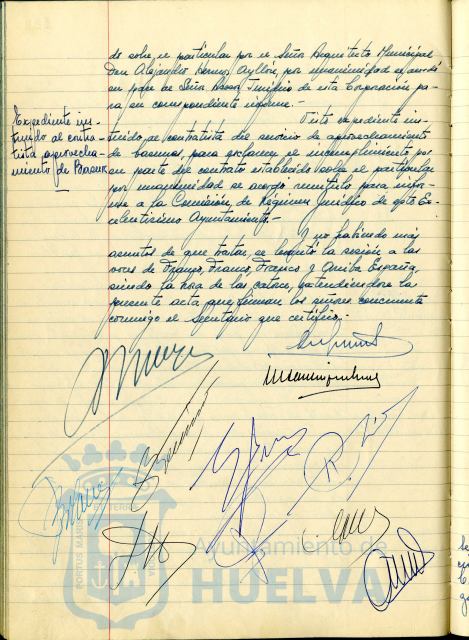 do sobre el particular por el Señor Arquitecto Municipal
Don Alejandro Herrero Ayllón, por unanimidad se acordó
en pase al Señor Asesor Jurídico de esta Corporación pa-
ra su correspondiente informe.-
Expediente ins-
truido al contra-
tista aprovecha-
miento de Basuras
Visto expediente ins-
truido al contratista del servicio de aprovechamiento
de basuras, para esclarecer el incumplimiento por
su parte del contrato establecido sobre el particular
por unanimidad se acordó remitirlo para infor-
me a la Comisión de Régimen Jurídico de este Ex-
celentísimo Ayuntamiento.-
Y no habiendo más
asuntos de que tratar, se levantó la sesión a las
voces de Franco, Franco, Franco y Arriba España,
siendo la hora de las catorce, extendiéndose la
presente acta que firman los señores concurrentes
conmigo el Secretario que certifico.-
Ayuntamiento de
HUELVA
PORTUS MARIS